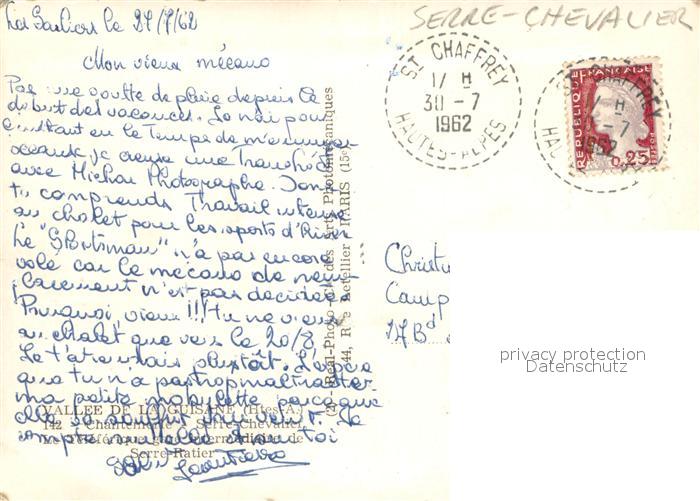 le 27/7/62
SERRE-CHEVALIER
Mon vieux mécano
Pas une goutte de pluie depuis le
début des vacances.
pour
le Temps de
je creuse une
avec Michou Photographe. Donc
tu comprends Travail intense
au chalet pour les sports d'Hiver
Le "Sportsman" n'a pas encore
volé car le mécano de
n'est pas décidé
Pourquoi, vieux !!! tu ne viens
au chalet que vers le 20/8
Je t'attendais plustôt. J'espère
que tu n'a pas trop maltraiter
ma petite mobylette parce que
elle
toi
ST CHAFFREY
17 H
30 -7
1962
HAUTES-ALPES
REPUBLIQUE FRANCAISE
0,25
POSTES
Real-Photo
des Arts Photomécaniques
44, Rue Letellier - PARIS (15e)
Christ
Camp
17 Bd
privacy protection
Datenschutz
VALLEE DE LA GUISANE (Htes-A.)
142 - Chantemerle - Serre-Chevalier
Le Téléphérique gare intermédiaire de
Serre-Ratier